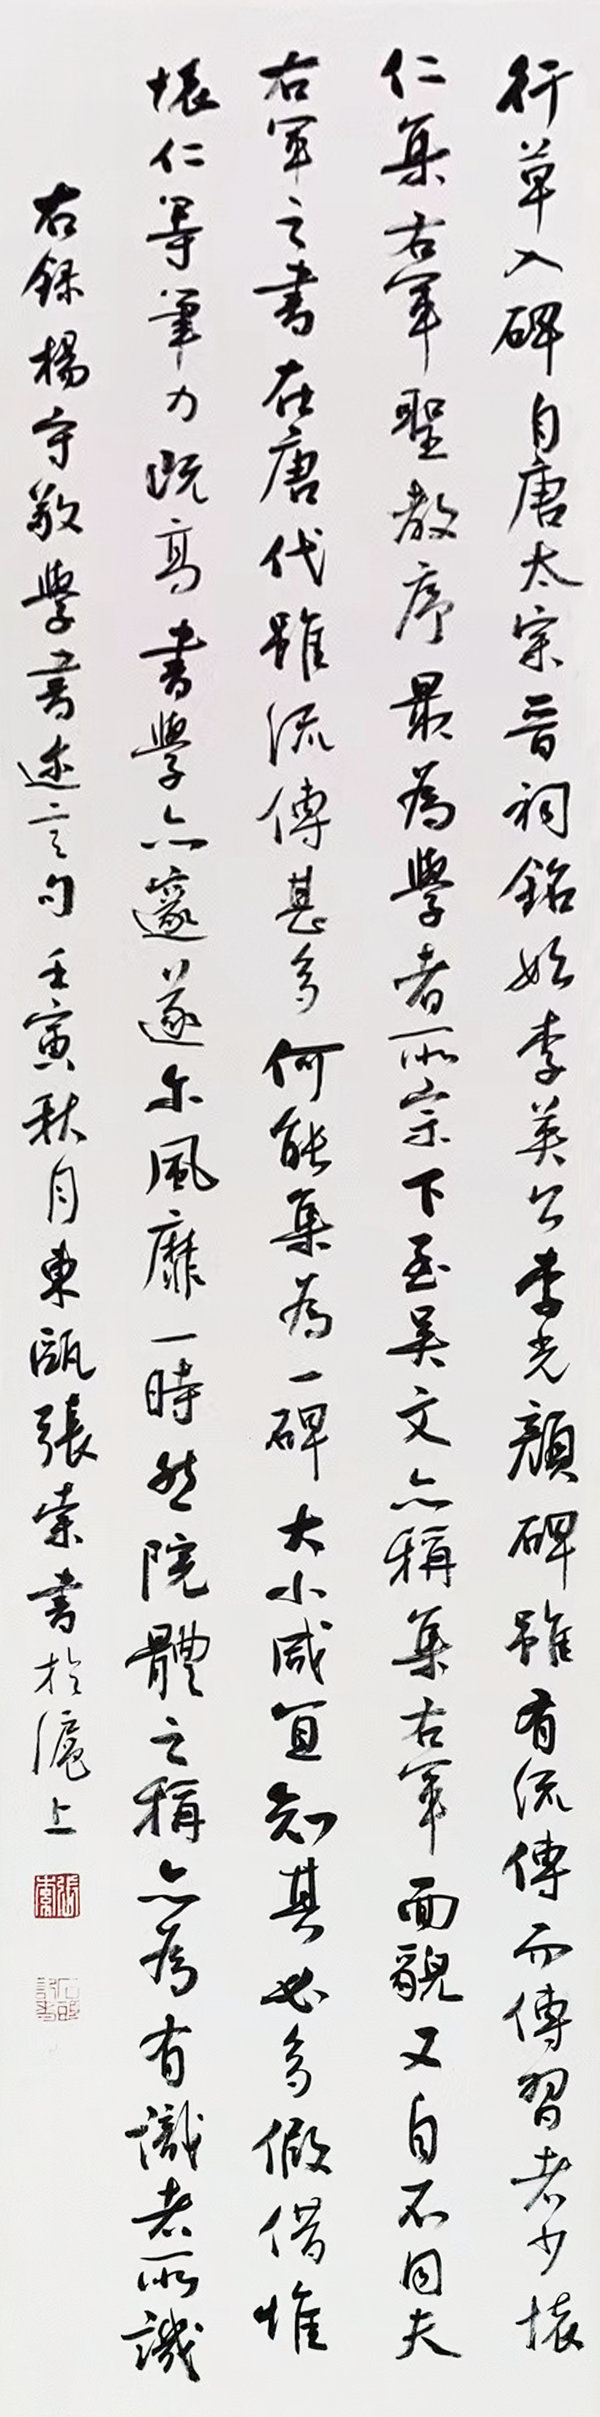 行草入碑自唐太宗晉祠銘始李英公李光顏碑雖有流傳而傳習者少懷
仁集右軍聖教序最為學者所宗下至吴文亦稱集右軍面貌又自不同夫
右軍之書在唐代雖流傳甚多何能集為一碑大小咸宜知其必多假借惟
懷仁等筆力既高書學亦邃遂尔風靡一時然院體之稱亦為有識者所譏
右錄楊守敬學書迩言句壬寅秋月東甌張索書於滬上
張索